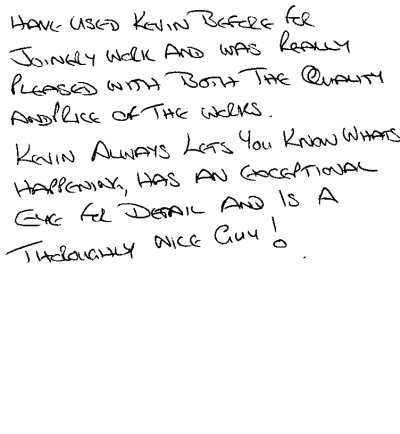 HAVE USED KEVIN BEFORE FOR
JOINERY WORK AND WAS REALLY
PLEASED WITH BOTH THE QUALITY
AND PRICE OF THE WORKS.
KEVIN ALWAYS LETS YOU KNOW WHATS
HAPPENING, HAS AN EXCEPTIONAL
EYE FOR DETAIL AND IS A
THOROUGHLY NICE GUY!